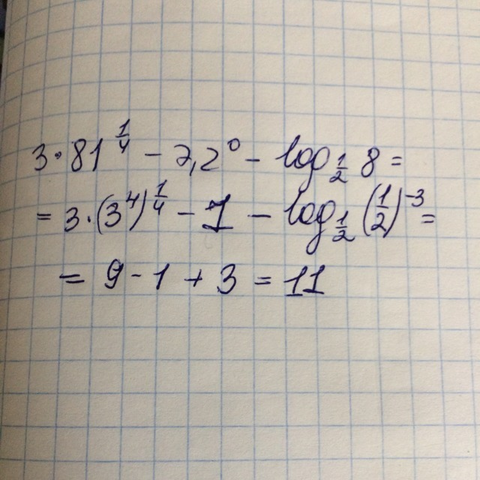 3·81^(1/4) - 2,2^0 - log_(1/2) 8 =
= 3·(3^4)^(1/4) - 1 - log_(1/2) (1/2)^(-3) =
= 9 - 1 + 3 = 11